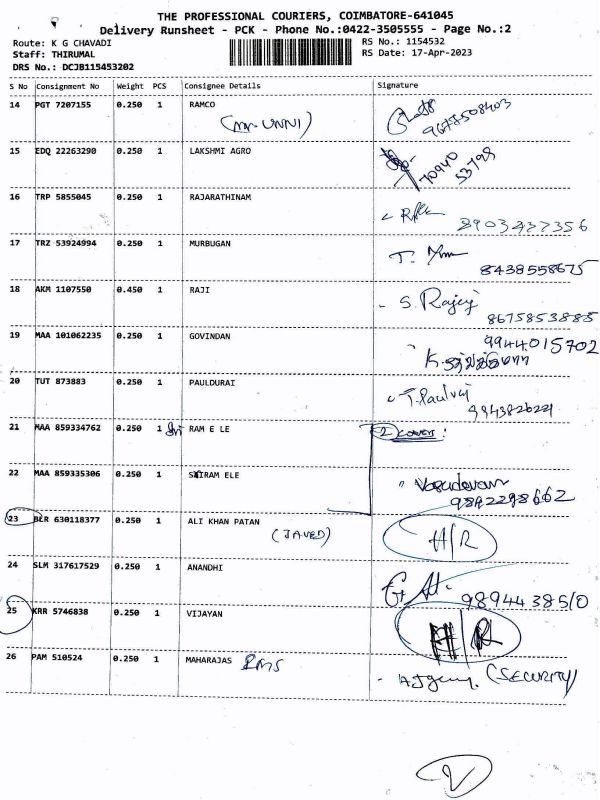 THE PROFESSIONAL COURIERS, COIMBATORE-641045
Delivery Runsheet - PCK - Phone No.:0422-3505555 - Page No.:2
Route: K G CHAVADI RS No.: 1154532
Staff: THIRUMAL RS Date: 17-Apr-2023
DRS No.: DCJB115453202
S No Consignment No Weight PCS Consignee Details Signature
14 PGT 7207155 0.250 1 RAMCO
(Mr. UNNI) 9677508403
15 EDQ 22263290 0.250 1 LAKSHMI AGRO
70940
53798
16 TRP 5855045 0.250 1 RAJARATHINAM
8903437356
17 TRZ 53924994 0.250 1 MURBUGAN
8438558675
18 AKM 1107550 0.450 1 RAJI S. Rajej
8675853885
19 MAA 101062235 0.250 1 GOVINDAN 9944015702
20 TUT 873883 0.250 1 PAULDURAI T. Paulraj
9943826221
21 MAA 859334762 0.250 1 Sri RAM E LE 2 Cover:
22 MAA 859335306 0.250 1 SAIRAM ELE Vasudevan
9892298662
23 BLR 630118377 0.250 1 ALI KHAN PATAN
(JAVED) H/R
24 SLM 317617529 0.250 1 ANANDHI
9894438510
25 KRR 5746838 0.250 1 VIJAYAN H/R
26 PAM 510524 0.250 1 MAHARAJAS RMS (SECURITY)